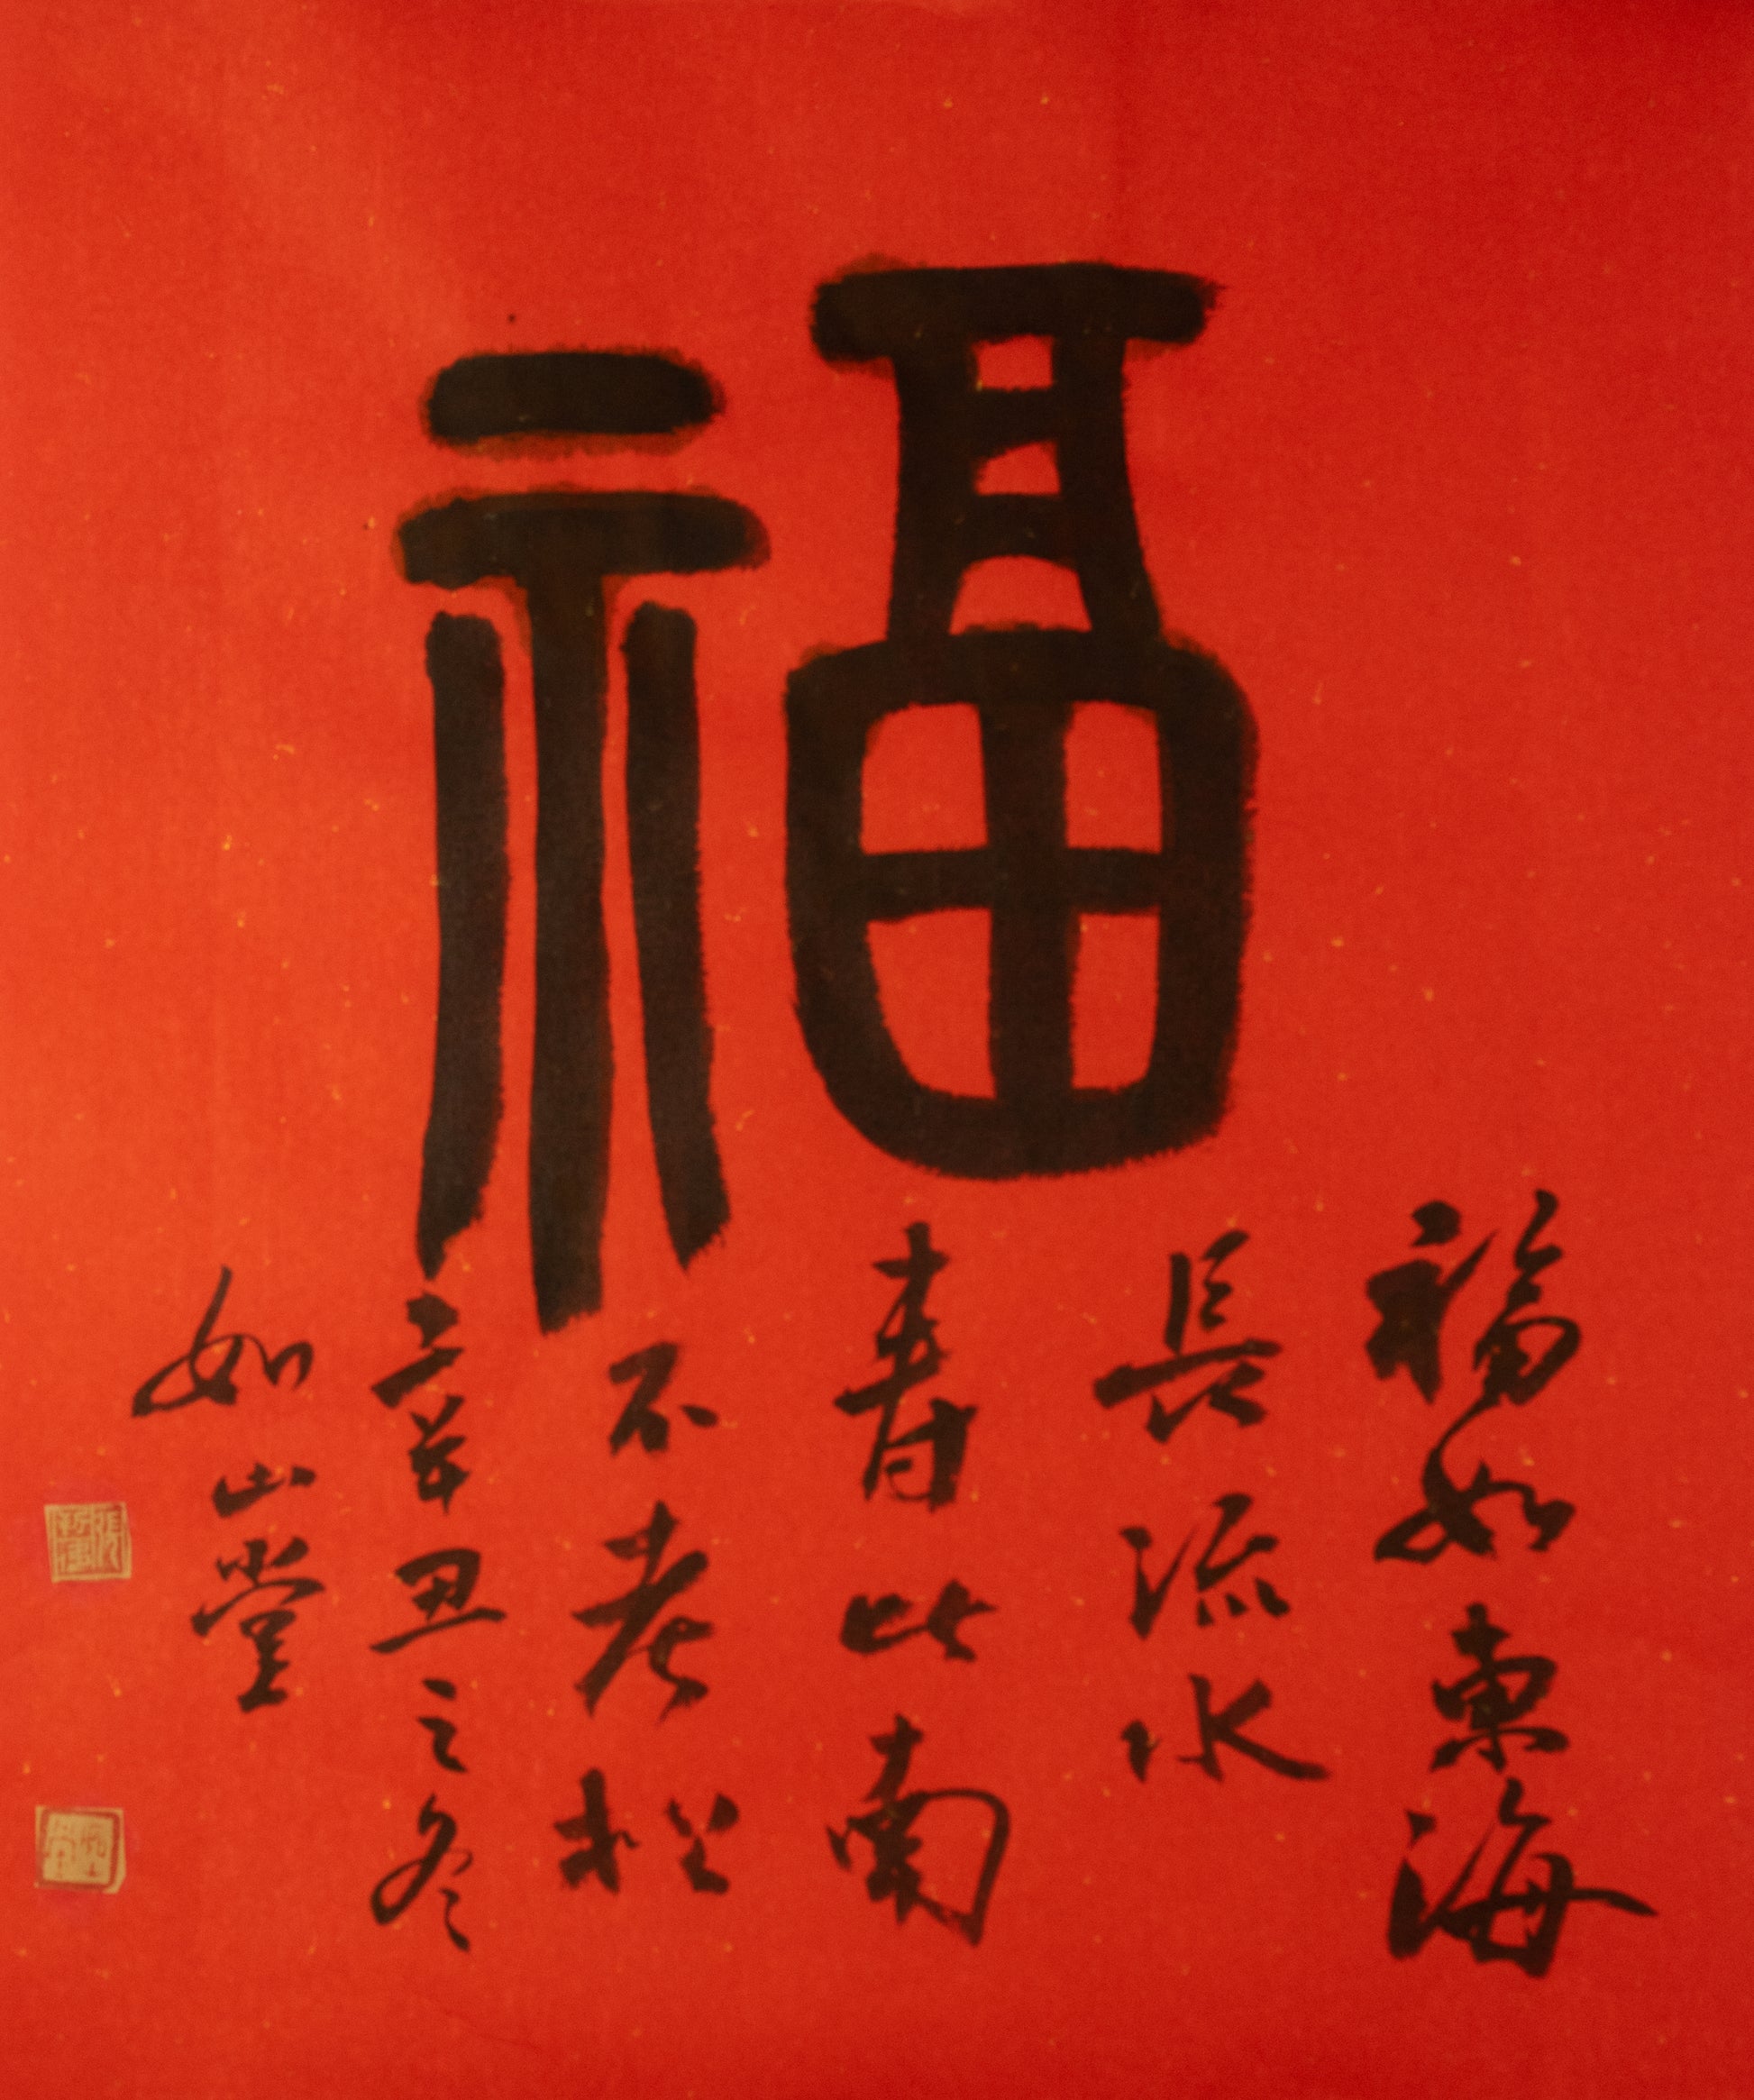 福
福如東海
長流水
壽比南
不老松
辛丑之冬
如山堂